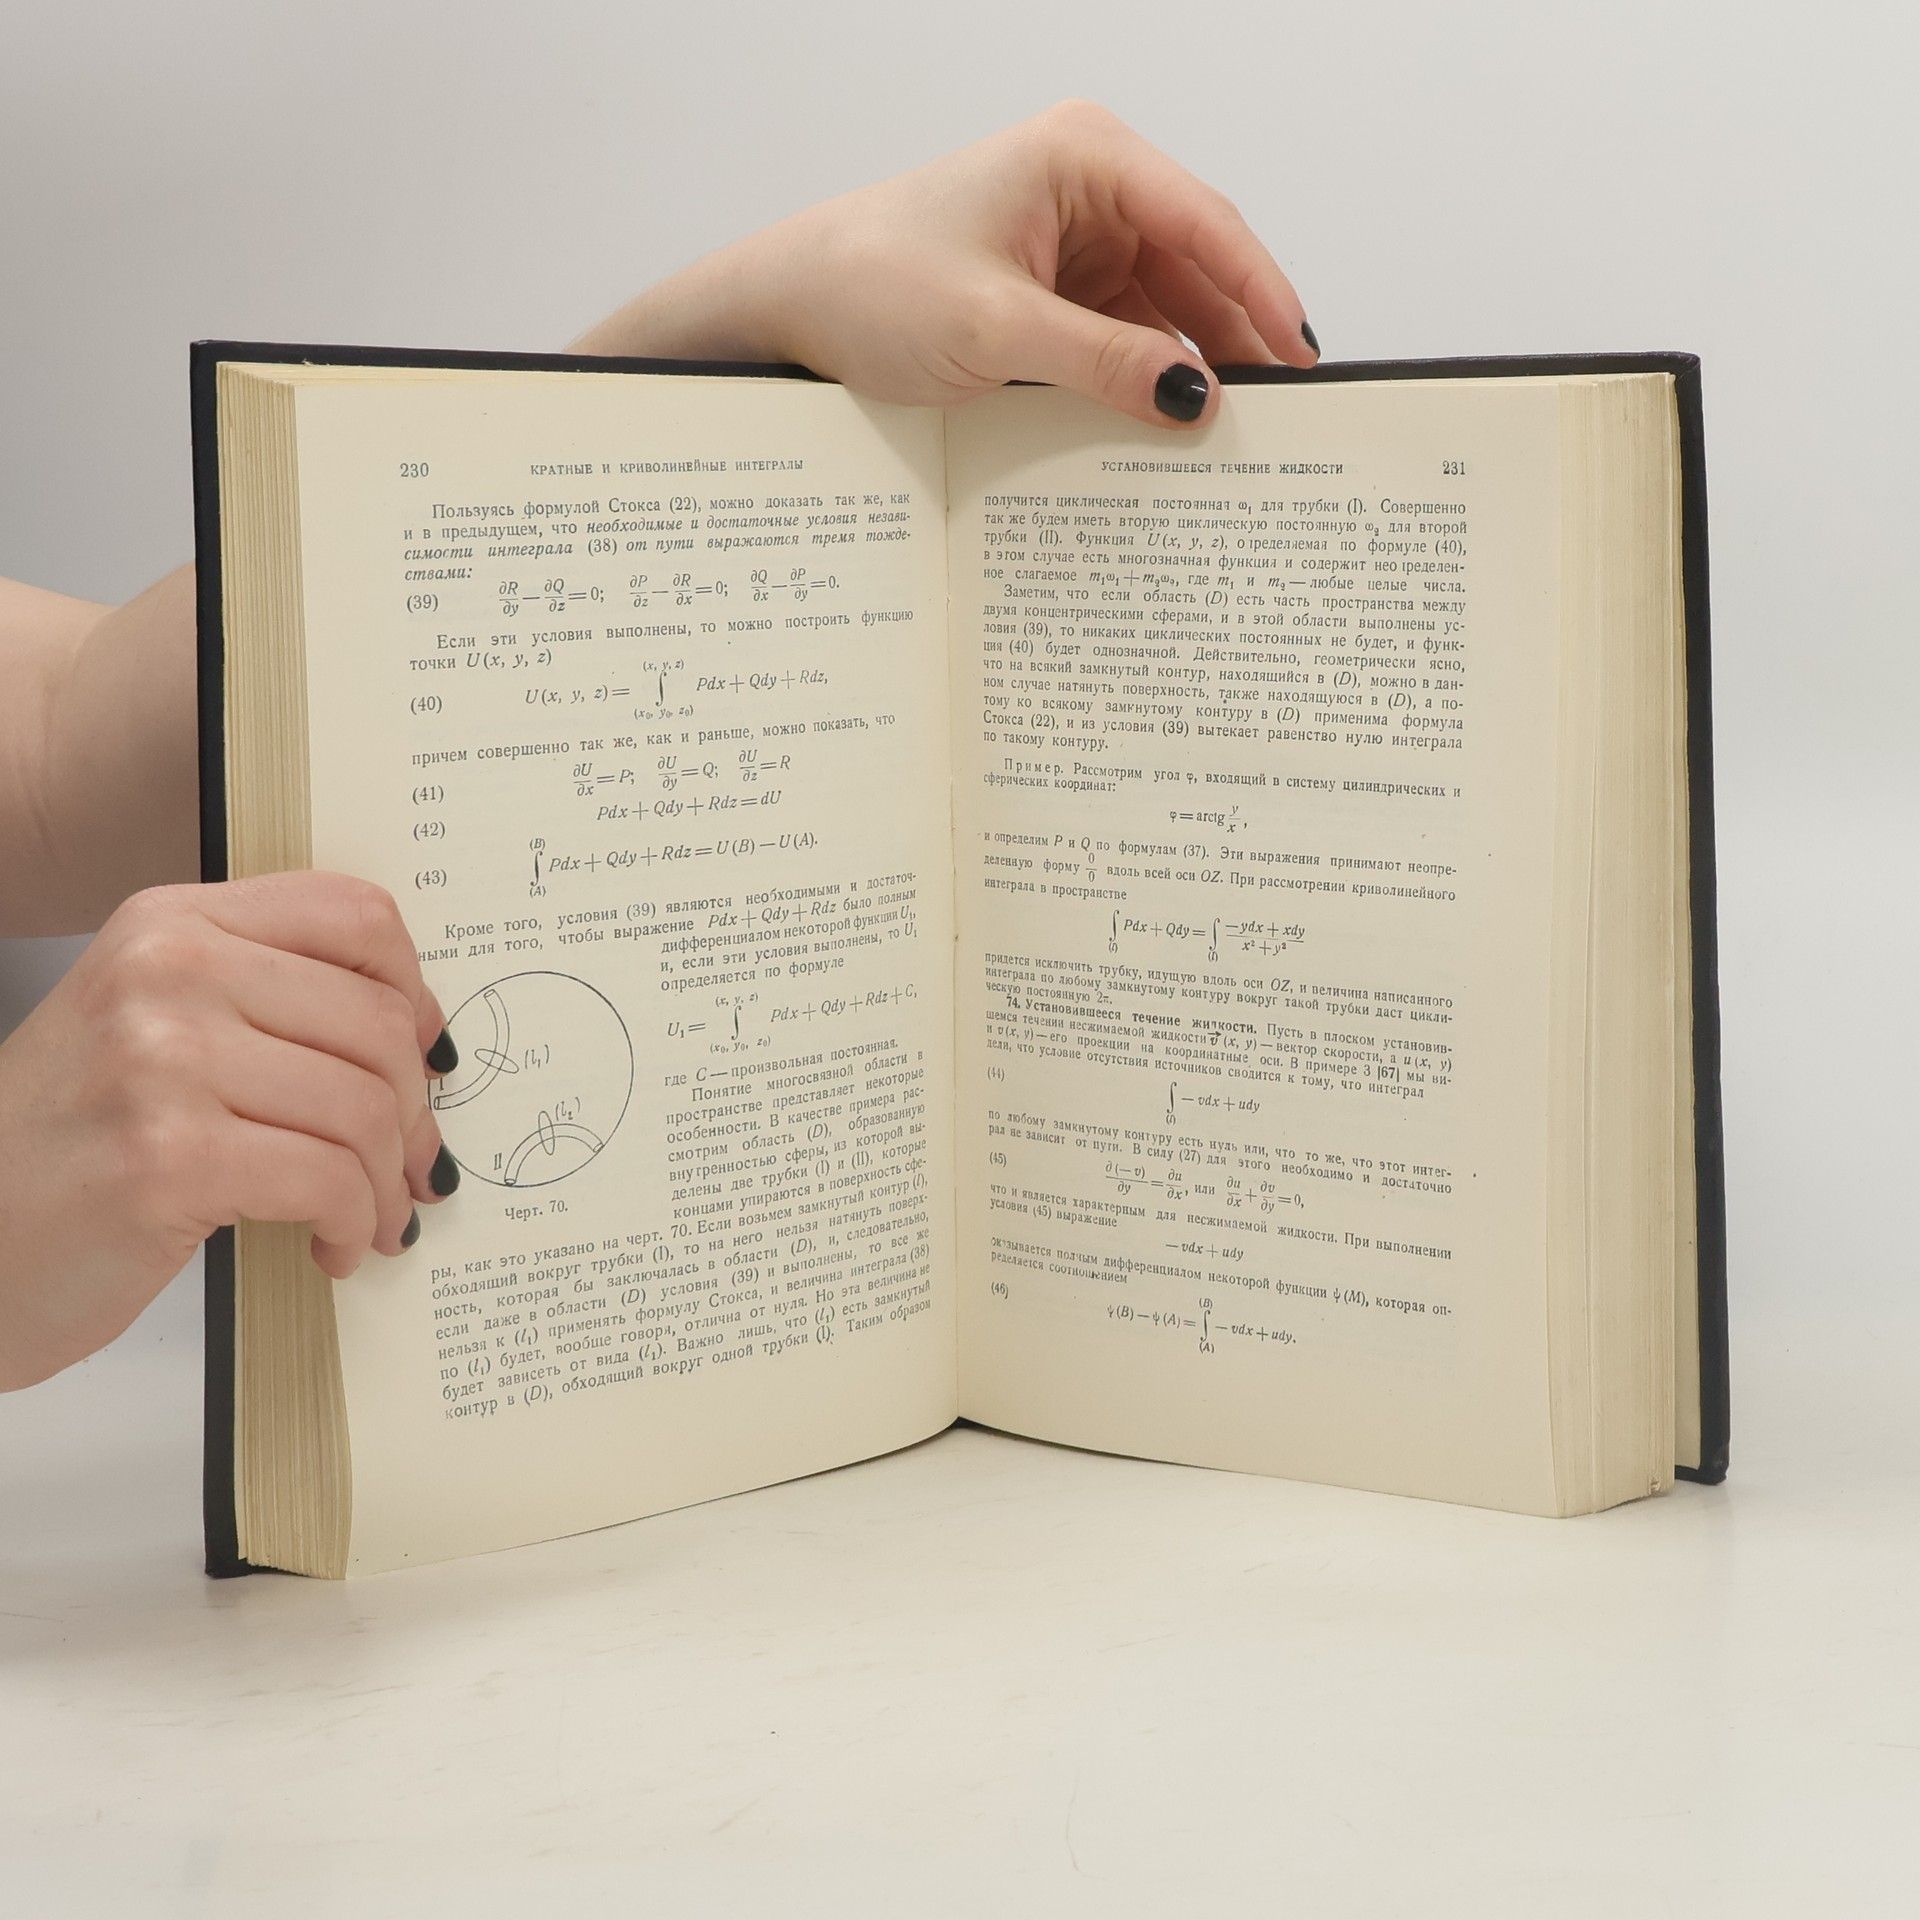 230 КРАТНЫЕ И КРИВОЛИНЕЙНЫЕ ИНТЕГРАЛЫ
Пользуясь формулой Стокса (22), можно доказать так же, как
и в предыдущем, что необходимые и достаточные условия незави-
симости интеграла (38) от пути выражаются тремя тожде-
ствами:
(39) ∂R/∂y — ∂Q/∂z = 0; ∂P/∂z — ∂R/∂x = 0; ∂Q/∂x — ∂P/∂y = 0.
Если эти условия выполнены, то можно построить функцию
точки U (x, y, z)
(40) U (x, y, z) = ∫_{(x₀, y₀, z₀)}^{(x, y, z)} Pdx + Qdy + Rdz,
причем совершенно так же, как и раньше, можно показать, что
(41) ∂U/∂x = P; ∂U/∂y = Q; ∂U/∂z = R
(42) Pdx + Qdy + Rdz = dU
(43) ∫_{(A)}^{(B)} Pdx + Qdy + Rdz = U (B) — U (A).
Кроме того, условия (39) являются необходимыми и достаточ-
ными для того, чтобы выражение Pdx + Qdy + Rdz было полным
дифференциалом некоторой функции U₁,
и, если эти условия выполнены, то U₁
определяется по формуле
U₁ = ∫_{(x₀, y₀, z₀)}^{(x, y, z)} Pdx + Qdy + Rdz + C,
где C — произвольная постоянная.
Понятие многосвязной области в
пространстве представляет некоторые
особенности. В качестве примера рас-
смотрим область (D), образованную
внутренностью сферы, из которой вы-
делены две трубки (I) и (II), которые
концами упираются в поверхность сфе-
I
(l₁)
(l₂)
II
Черт. 70.
ры, как это указано на черт. 70. Если возьмем замкнутый контур (l),
обходящий вокруг трубки (I), то на него нельзя натянуть поверх-
ность, которая бы заключалась в области (D), и, следовательно,
если даже в области (D) условия (39) и выполнены, то все же
нельзя к (l₁) применять формулу Стокса, и величина интеграла (38)
по (l₁) будет, вообще говоря, отлична от нуля. Но эта величина не
будет зависеть от вида (l₁). Важно лишь, что (l₁) есть замкнутый
контур в (D), обходящий вокруг одной трубки (I). Таким образом
УСТАНОВИВШЕЕСЯ ТЕЧЕНИЕ ЖИДКОСТИ 231
получится циклическая постоянная ω₁ для трубки (I). Совершенно
так же будем иметь вторую циклическую постоянную ω₂ для второй
трубки (II). Функция U (x, y, z), определяемая по формуле (40),
в этом случае есть многозначная функция и содержит неопределен-
ное слагаемое m₁ω₁ + m₂ω₂, где m₁ и m₂ — любые целые числа.
Заметим, что если область (D) есть часть пространства между
двумя концентрическими сферами, и в этой области выполнены ус-
ловия (39), то никаких циклических постоянных не будет, и функ-
ция (40) будет однозначной. Действительно, геометрически ясно,
что на всякий замкнутый контур, находящийся в (D), можно в дан-
ном случае натянуть поверхность, также находящуюся в (D), а по-
тому ко всякому замкнутому контуру в (D) применима формула
Стокса (22), и из условия (39) вытекает равенство нулю интеграла
по такому контуру.
Пример. Рассмотрим угол φ, входящий в систему цилиндрических и
сферических координат:
φ = arctg y/x,
и определим P и Q по формулам (37). Эти выражения принимают неопре-
деленную форму 0/0 вдоль всей оси OZ. При рассмотрении криволинейного
интеграла в пространстве
∫_{(l)} Pdx + Qdy = ∫_{(l)} (—ydx + xdy)/(x² + y²)
придется исключить трубку, идущую вдоль оси OZ, и величина написанного
интеграла по любому замкнутому контуру вокруг такой трубки даст цикли-
ческую постоянную 2π.
74. Установившееся течение жидкости. Пусть в плоском установив-
шемся течении несжимаемой жидкости v⃗ (x, y) — вектор скорости, а u (x, y)
и v (x, y) — его проекции на координатные оси. В примере 3 [67] мы ви-
дели, что условие отсутствия источников сводится к тому, что интеграл
(44) ∫_{(l)} — vdx + udy
по любому замкнутому контуру есть нуль или, что то же, что этот интег-
рал не зависит от пути. В силу (27) для этого необходимо и достаточно
(45) ∂(—v)/∂y = ∂u/∂x, или ∂u/∂x + ∂v/∂y = 0,
что и является характерным для несжимаемой жидкости. При выполнении
условия (45) выражение
— vdx + udy
оказывается полным дифференциалом некоторой функции ψ (M), которая оп-
ределяется соотношением
(46) ψ (B) — ψ (A) = ∫_{(A)}^{(B)} — vdx + udy.